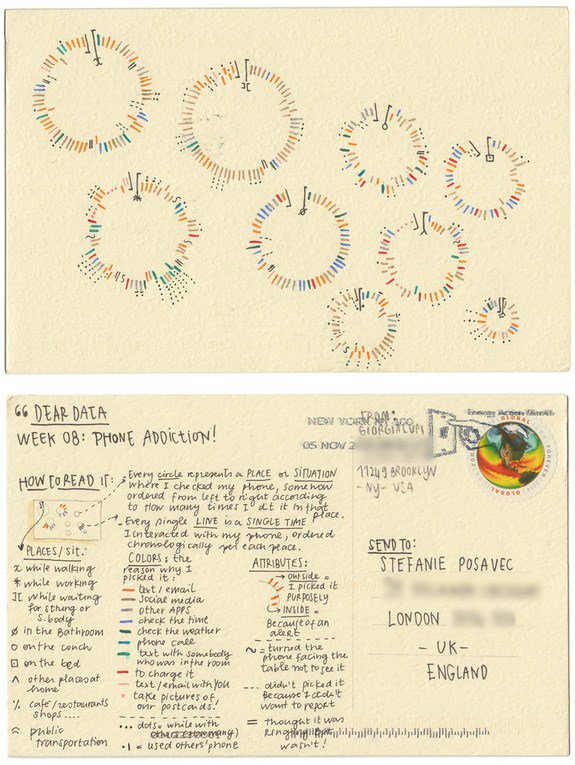 “ DEAR DATA
WEEK 08: PHONE ADDICTION!
HOW TO READ IT:
Every circle represents a PLACE or SITUATION
where I checked my phone, somehow
ordered from left to right according
to how many times I did it in that place.
Every single LINE is a SINGLE TIME
I interacted with my phone, ordered
chronologically per each peace.
PLACES/SIT:
while walking
* while working
][ while waiting
for sthing or
s.body
ø in the Bathroom
o on the couch
on the bed
^ other places at
home
cafe/restaurants
shops....
public
transportation
COLORS: the
reason why I
picked it:
text/email
Social media
other APPS
check the time
check the weather
phone call
text with somebody
who was in the room
to charge it
text/email with YOU
take pictures of
our postcards!
... dots = while with
= used others' phone
ATTRIBUTES:
outside =
I picked it
PURPOSELY
INSIDE =
Because of an
alert
~ = turned the
phone facing the
table not to see it
--- didn't picked it
because I didn't
want to report
= thought it was
ringing but
wasn't!
NEW YORK NY 100
05 NOV 2
FROM:
GIORGIA LUPI
11249 BROOKLYN
- NY - USA
GLOBAL
FOREVER
SEND TO:
STEFANIE POSAVEC
LONDON
- UK -
ENGLAND